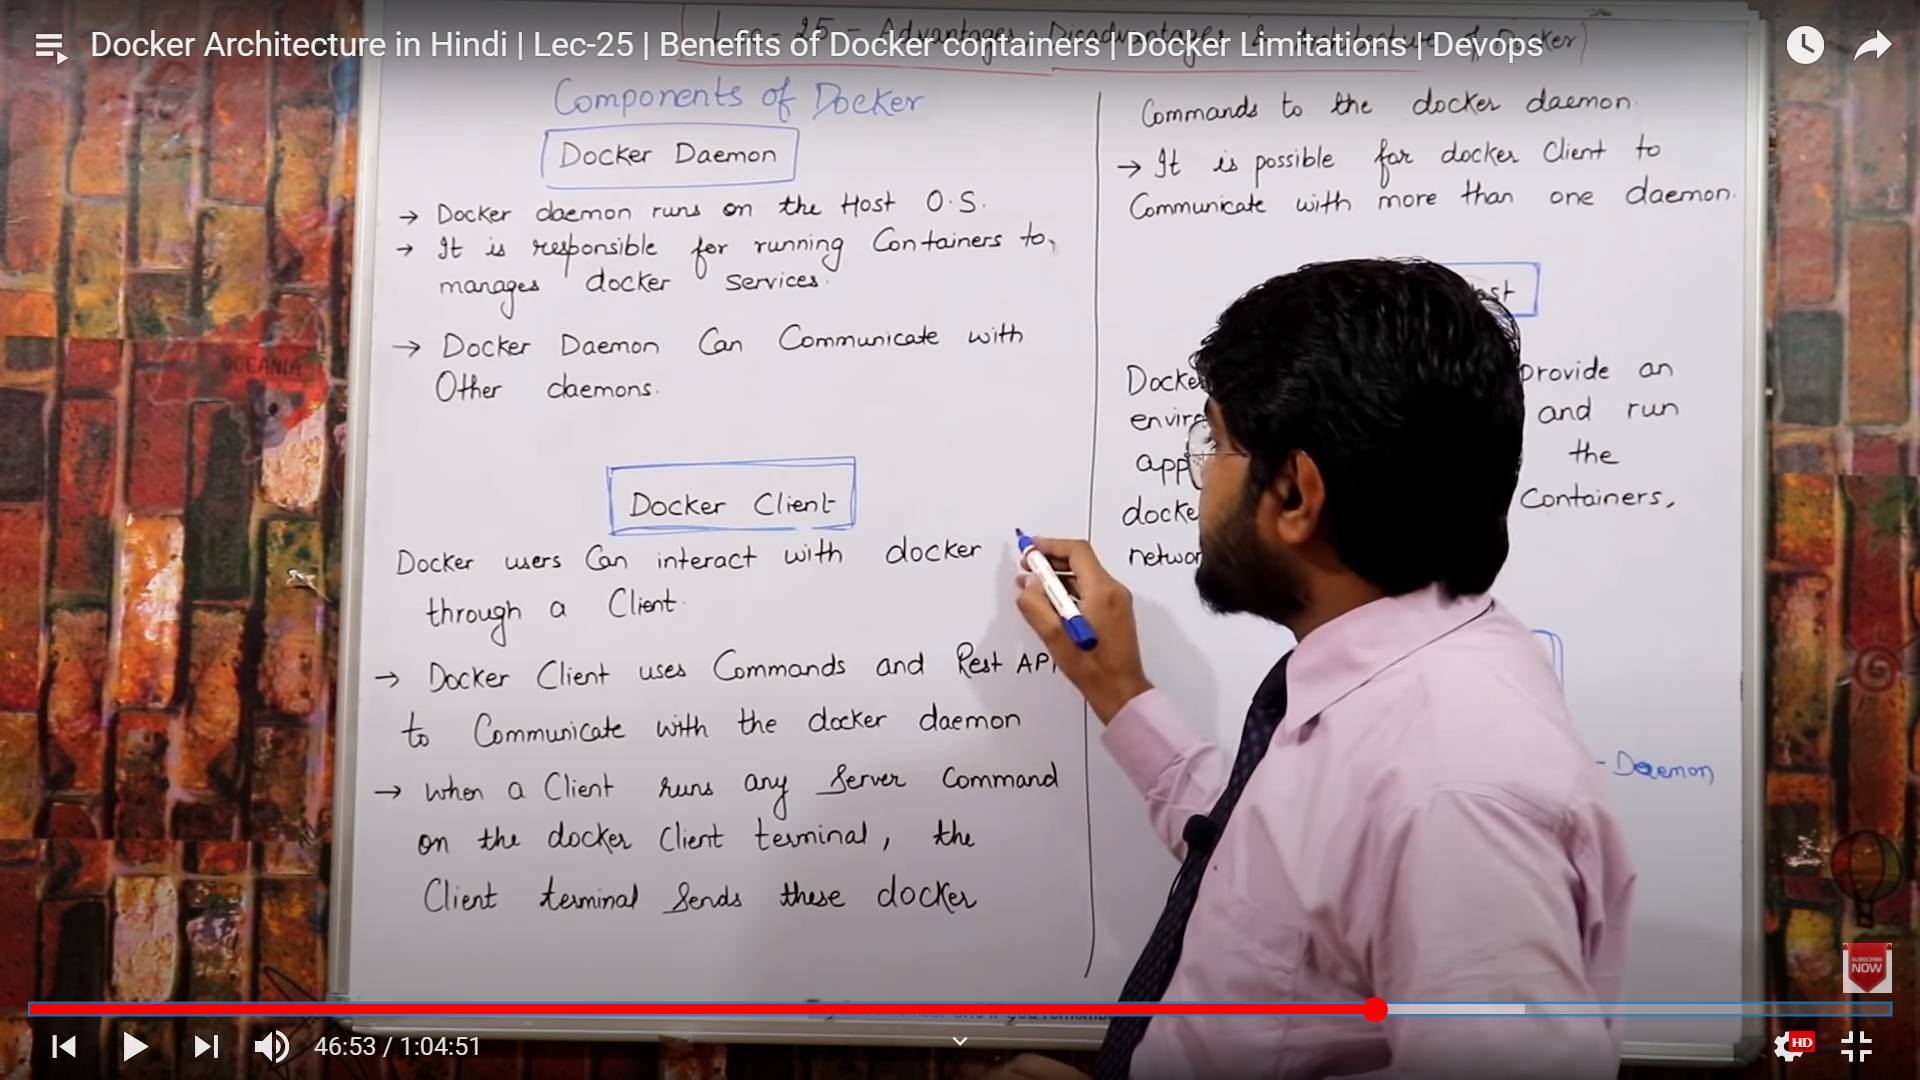 Docker Architecture in Hindi | Lec-25 | Benefits of Docker containers | Docker Limitations | Devops
Lec - 25 - Advantages, Disadvantages & Architecture of Docker
Components of Docker
Docker Daemon
→ Docker daemon runs on the Host O.S.
→ It is responsible for running Containers to
manages docker services.
→ Docker Daemon Can Communicate with
Other daemons.
Docker Client
Docker users Can interact with docker
through a Client.
→ Docker Client uses Commands and Rest API
to Communicate with the docker daemon
→ when a Client runs any Server Command
on the docker Client terminal, the
Client terminal Sends these docker
Commands to the docker daemon.
→ It is possible for docker Client to
Communicate with more than one daemon.
provide an
and run
the
Containers,
- Daemon
OCEANIA
SUBSCRIBE
NOW
46:53 / 1:04:51
HD